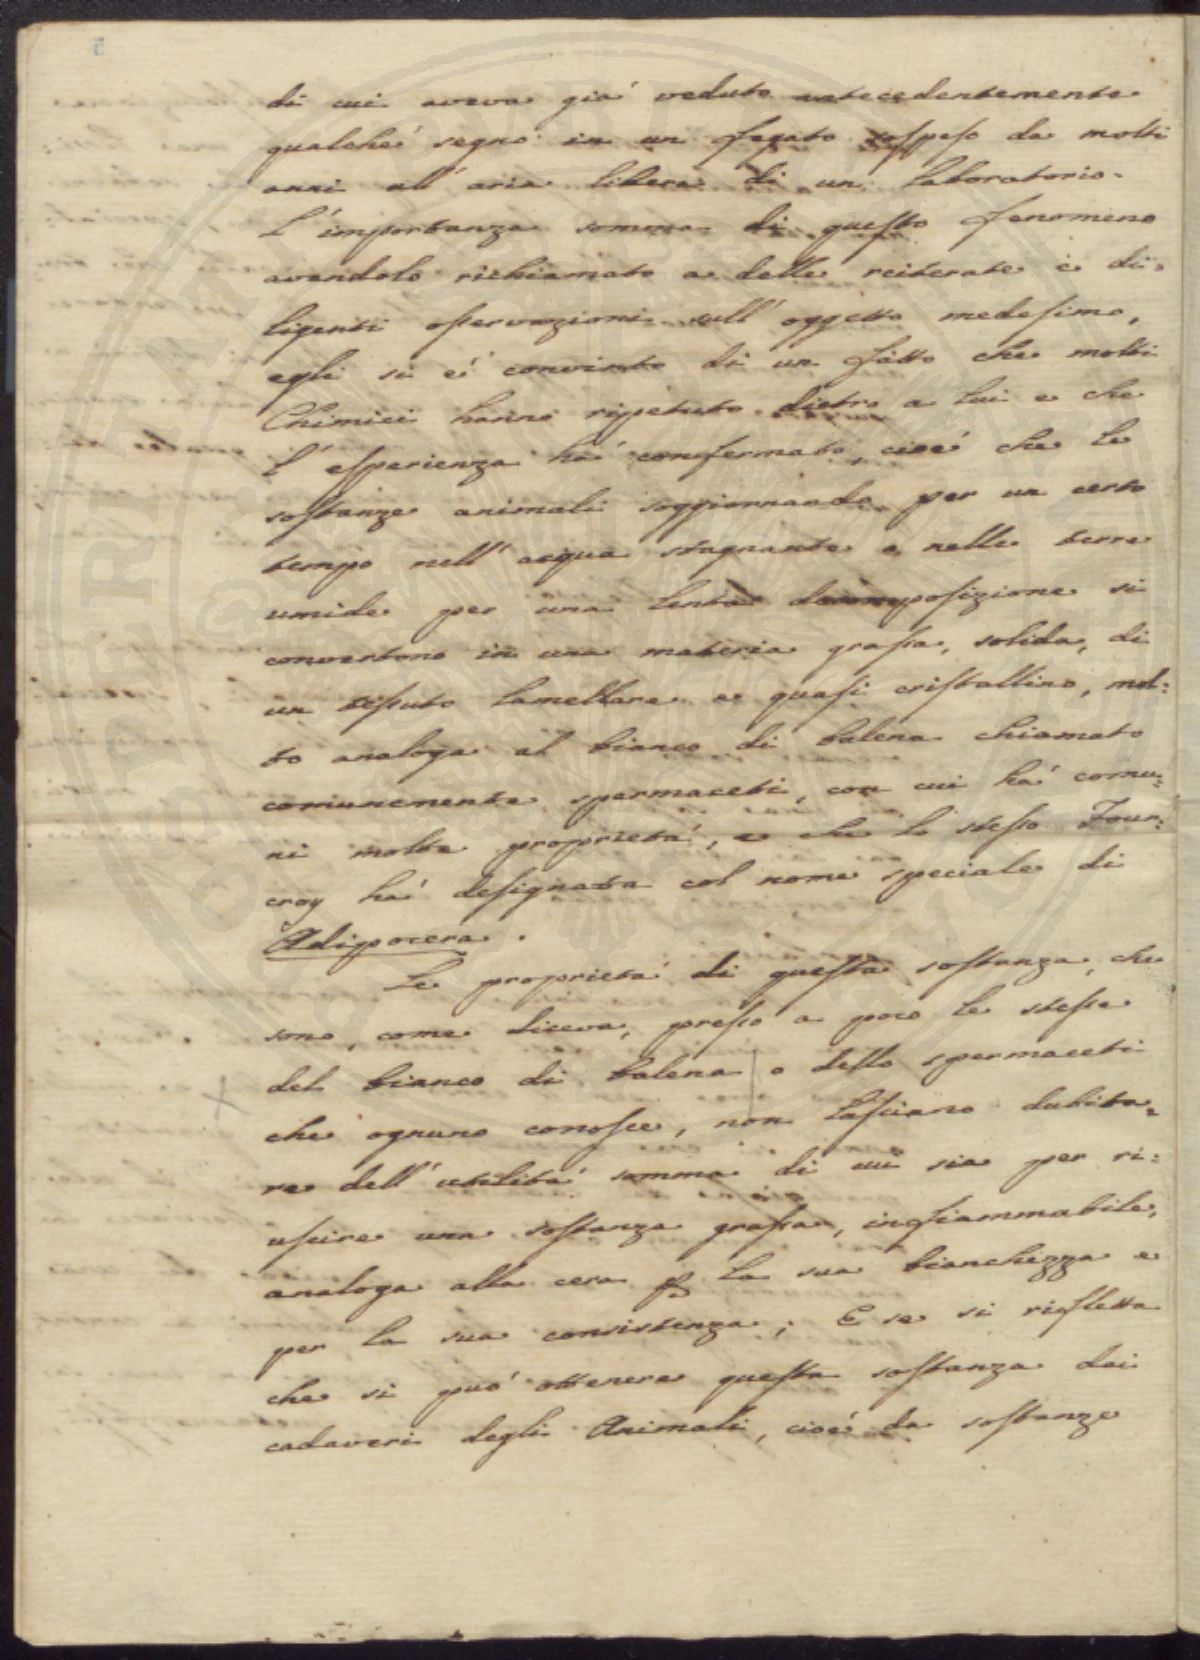 di cui aveva già veduto antecedentemente
qualche' segno in un fegato sospeso da molti
anni all' aria libera di un laboratorio.
L'importanza somma di questo fenomeno
avendolo richiamato a delle reiterate e di=
ligenti osservazioni sull' oggetto medesimo,
egli si è convinto di un fatto che molti
Chimici hanno ripetuto dietro a lui e che
l' esperienza há confermato, cioè che le
sostanze animali soggiornando per un certo
tempo nell' acqua stagnante e nelle terre
umide per una lenta decomposizione si
convertono in una materia grassa, solida, di
un tessuto lamellare e quasi cristallino, mol=
to analoga al bianco di balena chiamato
comunemente spermaceti, con cui há comu=
ni molte proprietà, e che lo stesso Four=
croy há designata col nome speciale di
Adipocera.
Le proprietà di questa sostanza, che
sono, come diceva, presso a poco le stesse
del bianco di balena o dello spermaceti
che ognuno conosce, non lasciano dubita=
re dell' utilità somma di cui sia per ri=
uscire una sostanza grassa, infiammabile,
analoga alla cera p. la sua bianchezza e
per la sua consistenza; E se si rifletta
che si può ottenere questa sostanza dai
cadaveri degli Animali, cioè da sostanze